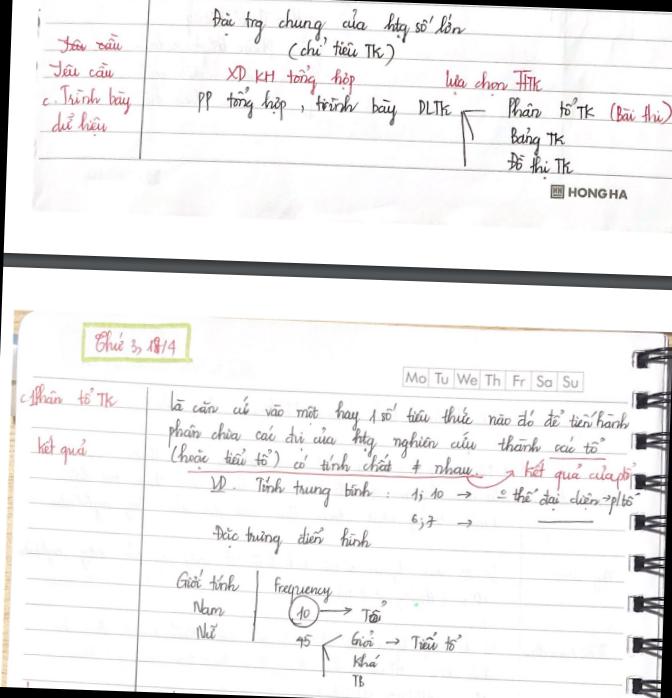 Đặc trg chung của htg số lớn
(chỉ tiêu TK)
Yêu cầu
Yêu cầu XD KH tổng hợp lựa chọn
c. Trình bày PP tổng hợp, trình bày DLTK Phân tổ TK (Bài thi)
dữ liệu Bảng TK
Đồ thị TK
HONG HA
Thứ 3, 18/4
Mo Tu We Th Fr Sa Su
Phân tổ TK là căn cứ vào một hay 1 số tiêu thức nào đó để tiến hành
kết quả phân chia các đvị của htg nghiên cứu thành các tổ
(hoặc tiểu tổ) có tính chất ≠ nhau. → Kết quả của
VD. Tính trung bình : 1; 10 → thể đại diện → p/tổ
6; 7 →
Đặc trưng điển hình
Giới tính Frequency
Nam 10 → Tổ
Nữ 45 Giỏi → Tiểu tổ
Khá
TB